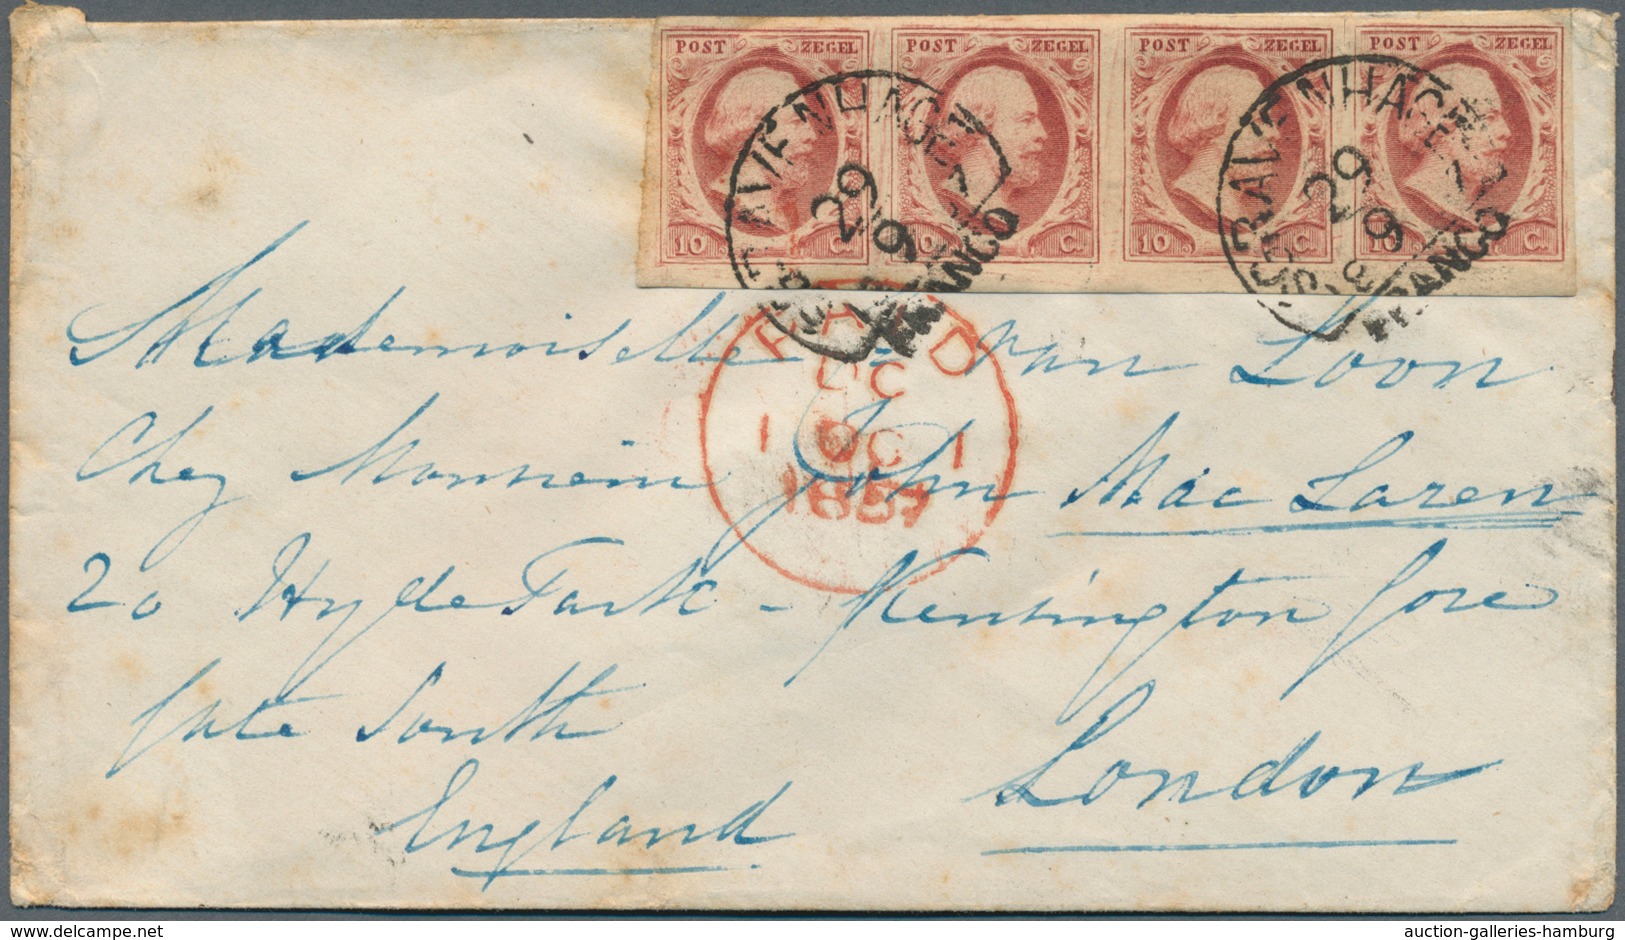 POST ZEGEL POST ZEGEL POST ZEGEL POST ZEGEL
10 C. 10 C. 10 C. 10 C.
'SGRAVENHAGE
29
9
FRANCO
'SGRAVENHAGE
29
9
FRANCO
PAID
1 OC 1
1857
Mademoiselle van Loon
Chez Monsieur John Mac Laren
20 Hyde Park - Kensington Gore
Gate South
England London
delcampe.net
auction-galleries-hamburg